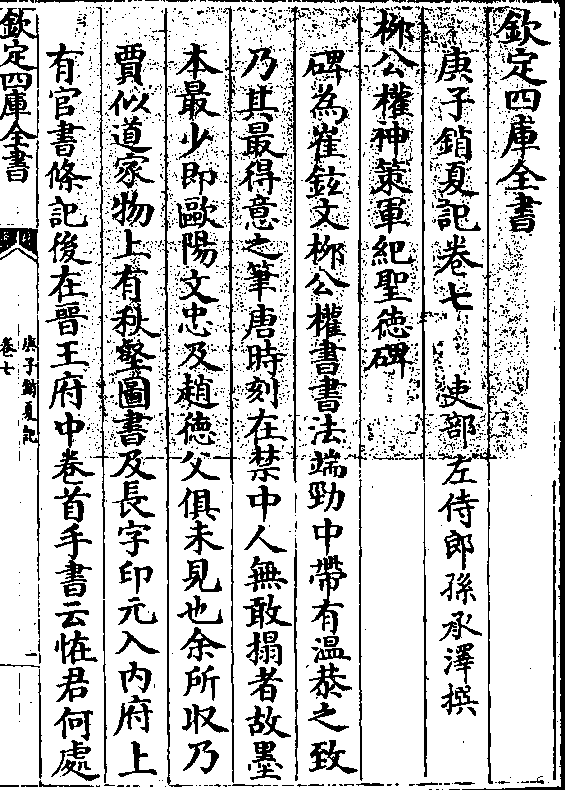 欽定四庫全書
庚子銷夏記卷七 吏部左侍郎孫承澤撰
柳公權神策軍紀聖德碑
碑為崔鉉文柳公權書書法端勁中帶有温恭之致
乃其最得意之筆唐時刻在禁中人無敢搨者故墨
本最少即歐陽文忠及趙德父俱未見也余所収乃
賈似道家物上有秋壑圖書及長字印元入内府上
有官書條記後在晉王府中卷首手書云恠君何處
欽定四庫全書
庚子銷夏記
卷七
一